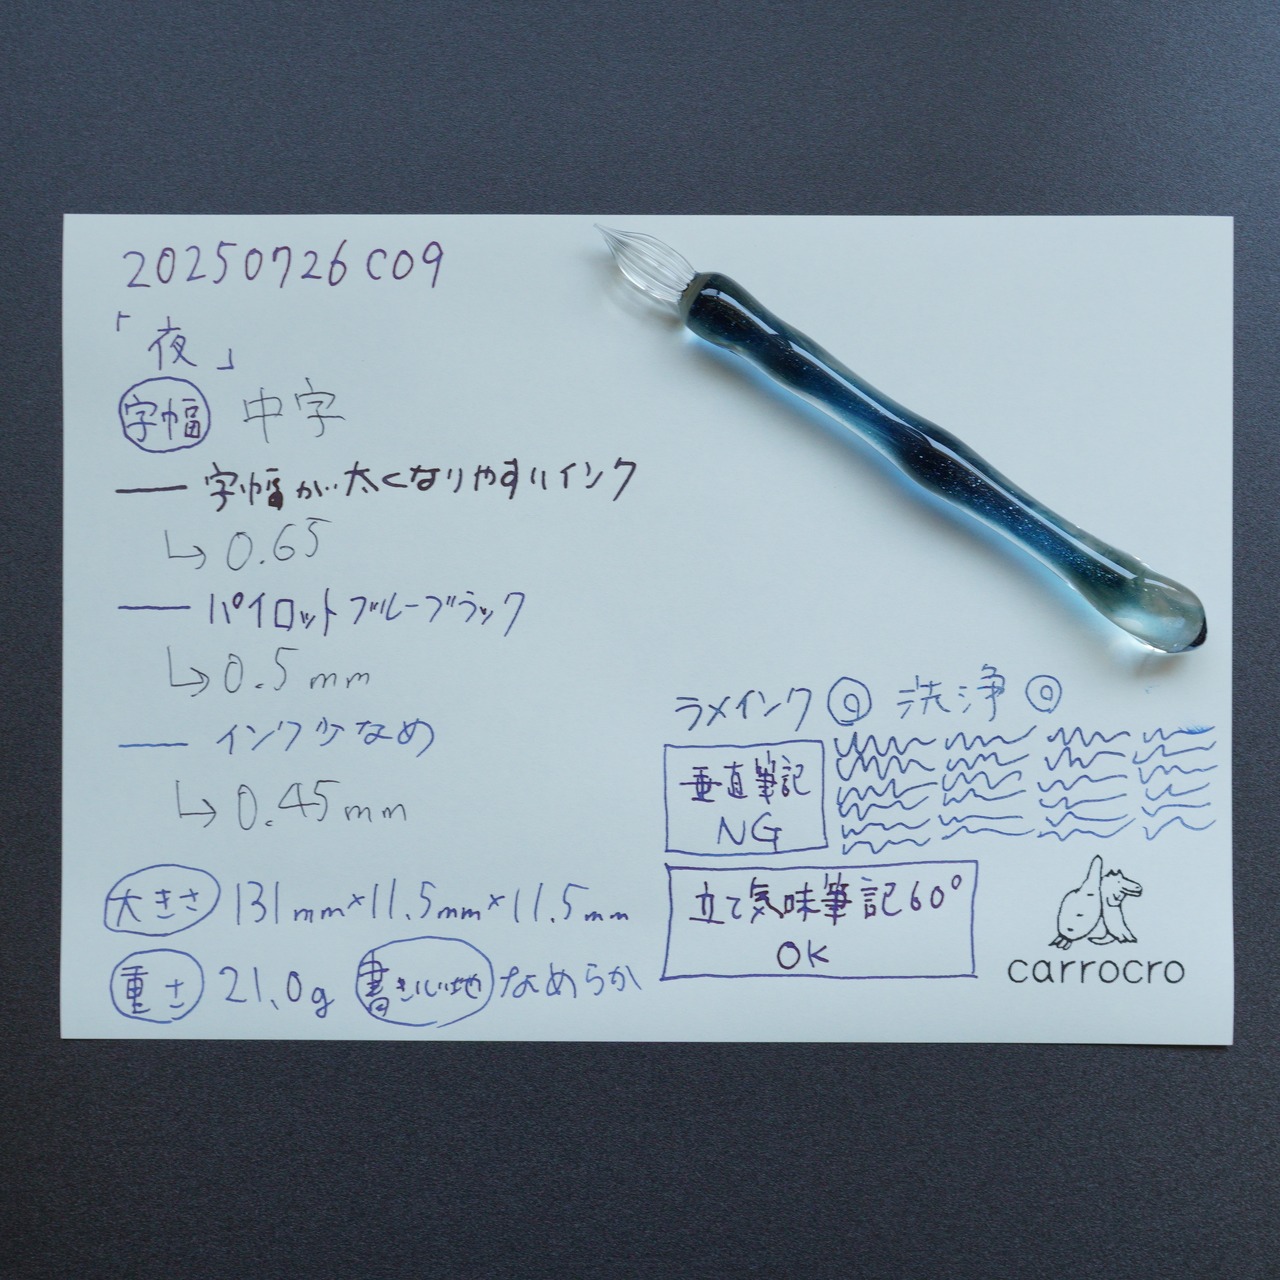 20250726C09
「夜」
字幅 中字
字幅が太くなりやすいインク
↳ 0.65
パイロットブルーブラック
↳ 0.5mm
インク少なめ
↳ 0.45mm
大きさ 131mm×11.5mm×11.5mm
重さ 21.0g 書きい心地 なめらか
ラメインク ◎ 洗浄 ◎
垂直筆記
NG
立て気味筆記60°
OK
carrocro